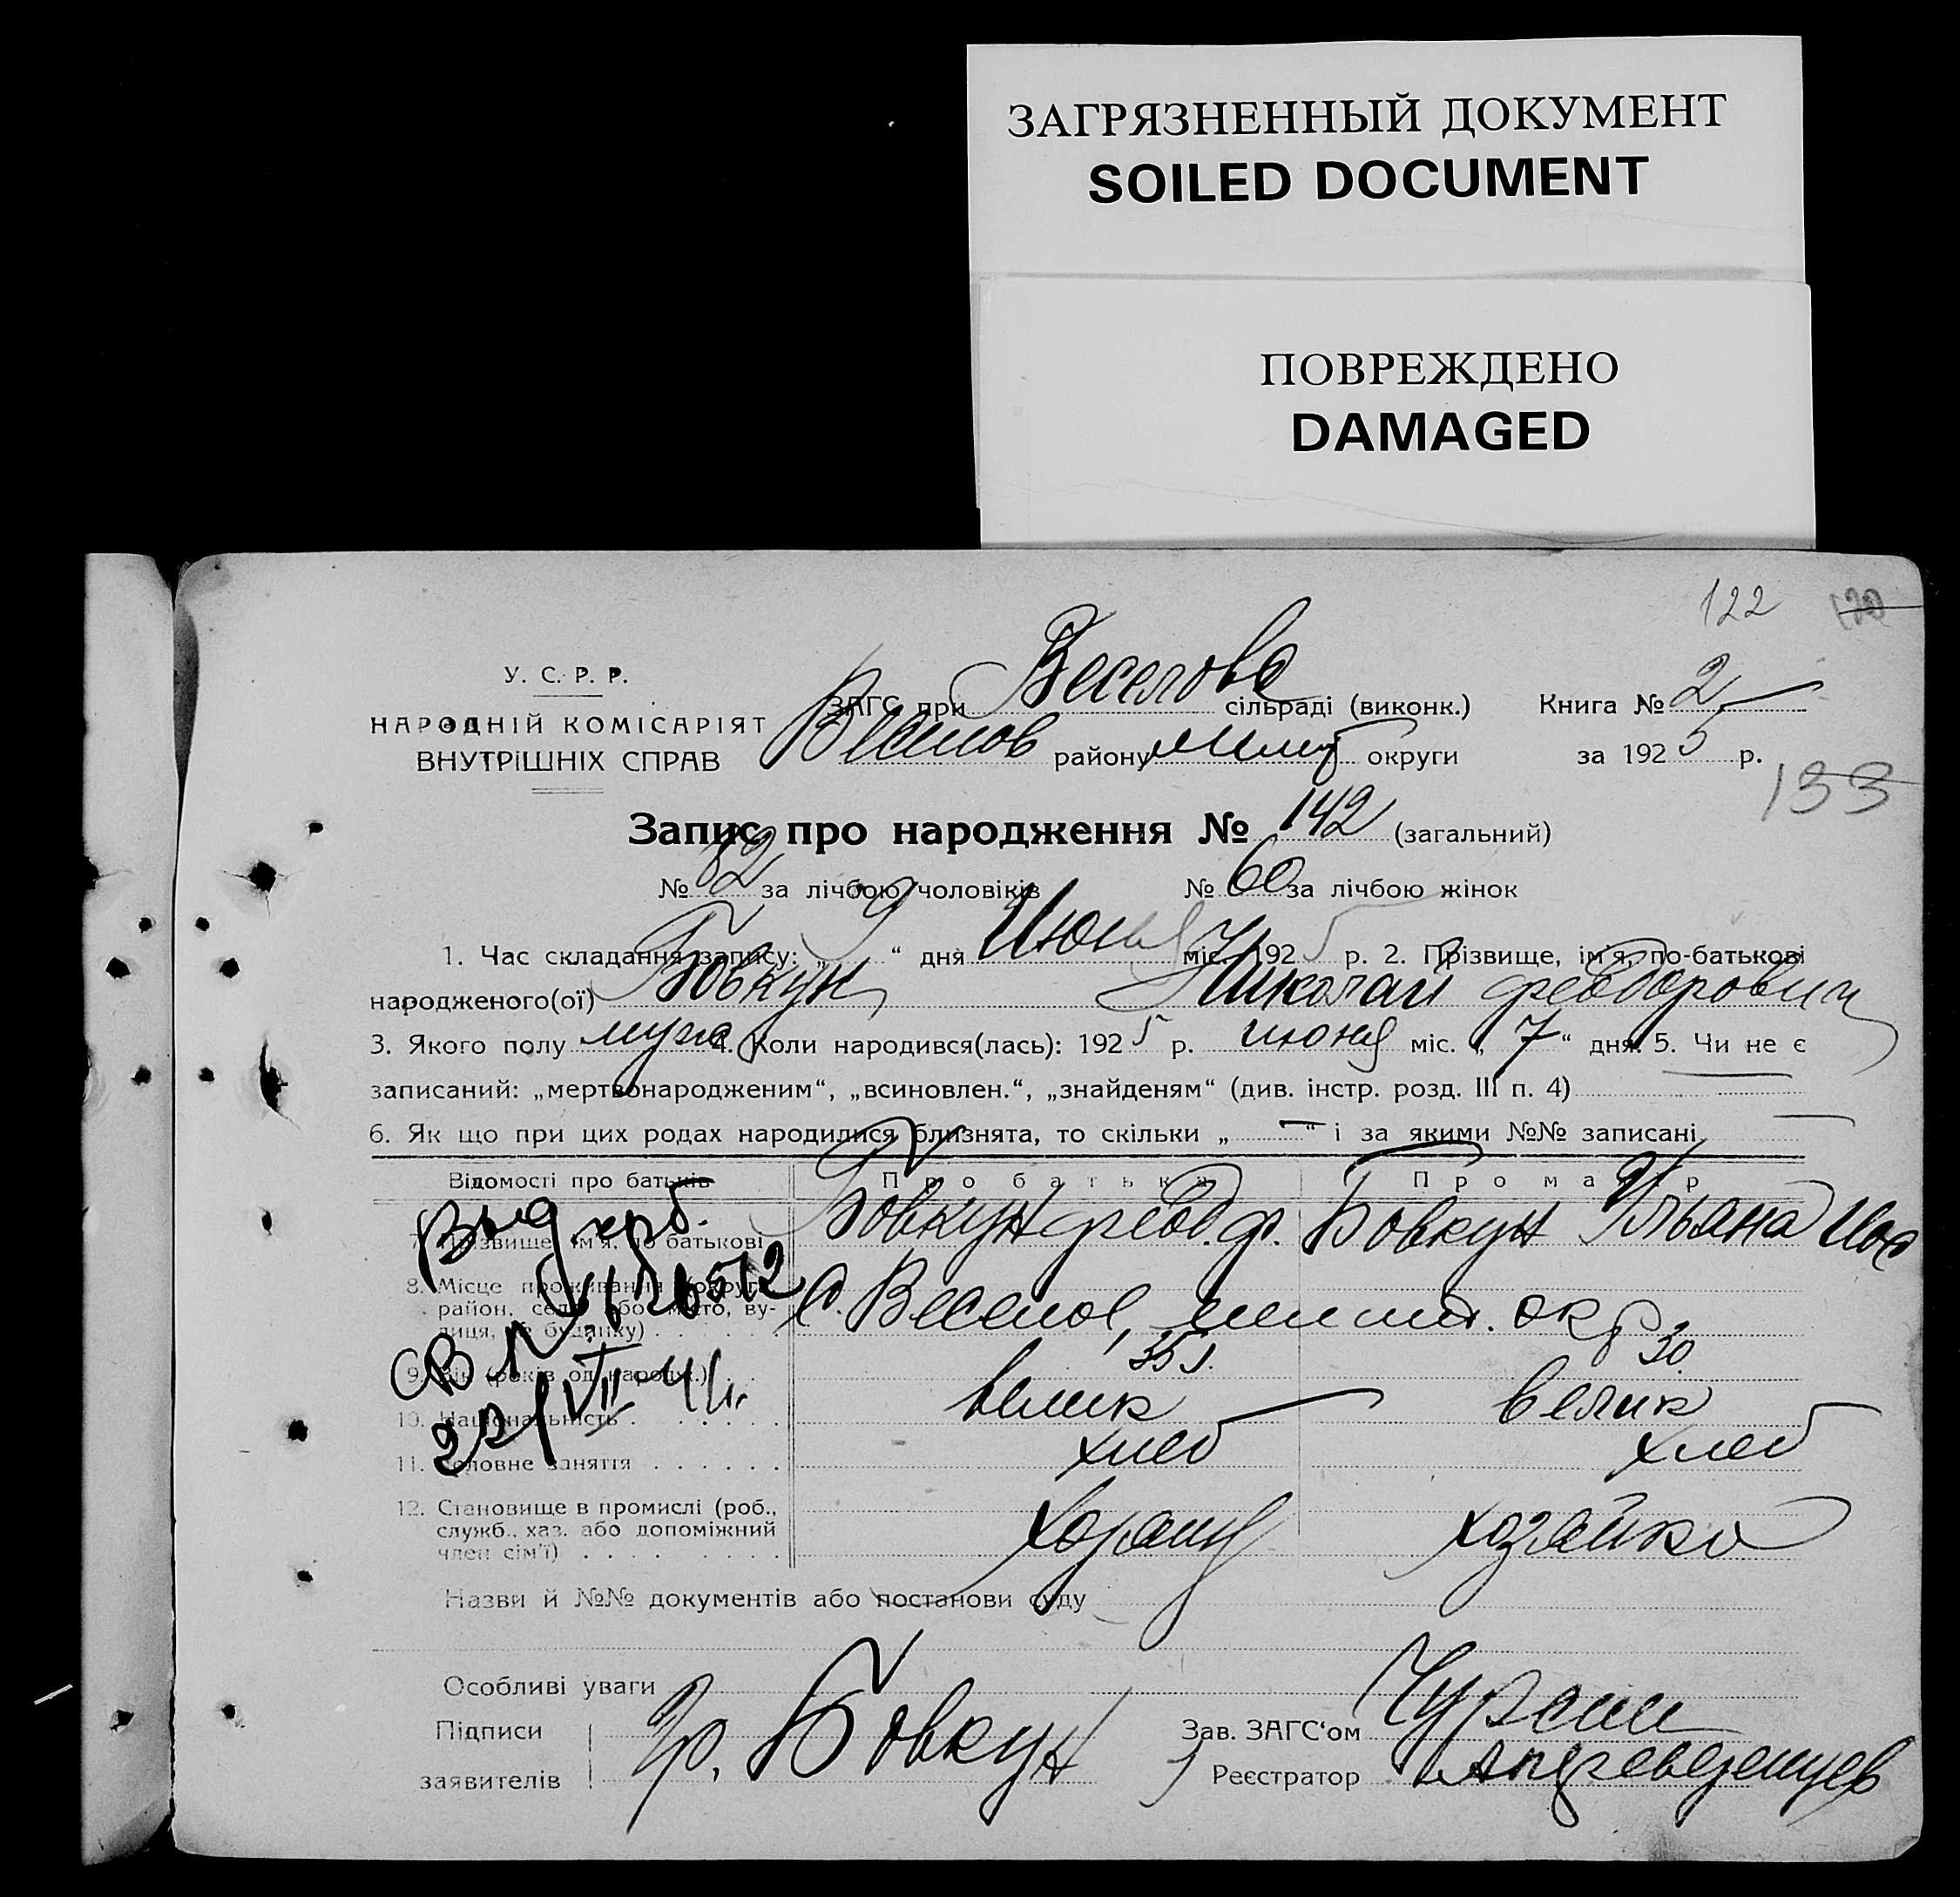 ЗАГРЯЗНЕННЫЙ ДОКУМЕНТ
SOILED DOCUMENT
ПОВРЕЖДЕНО
DAMAGED
122
У. С. Р. Р.
НАРОДНІЙ КОМІСАРІЯТ
ВНУТРІШНІХ СПРАВ
ЗАГС при сільраді (виконк.) Книга № 2
району округи за 1925 р.
133
Запис про народження № 142 (загальний)
№ 82 за лічбою чоловіків № 60 за лічбою жінок
1. Час складання запису: „ 9 “ дня Июня міс. 1925 р. 2. Прізвище, ім'я, по-батькові
народженого(ої) Бовкун Николай Феодорович
3. Якого полу 4. Коли народився(лась): 1925 р. июня міс. „ 7 “ дня. 5. Чи не є
записаний: „мертвонародженим“, „всиновлен.“, „знайденям“ (див. інстр. розд. III п. 4)
6. Як що при цих родах народилися близнята, то скільки „ — “ і за якими №№ записані
Відомості про батьків Про батька Про матір
7. Прізвище, ім'я, по батькові Бовкун Феод. Ф. Бовкун Ульяна
8. Місце проживання (округа,
район, село або місто, ву-
лиця, № будинку) С. Веселое, окр
9. Вік (років од народж.) 35 30
10. Національність велик велик
11. Головне заняття хлеб хлеб
12. Становище в промислі (роб.,
служб., хаз. або допоміжний
член сім'ї) хозяин хозяйка
Назви й №№ документів або постанови суду
Особливі уваги
Підписи Гр. Бовкун Зав. ЗАГС‘ом
заявителів Реєстратор